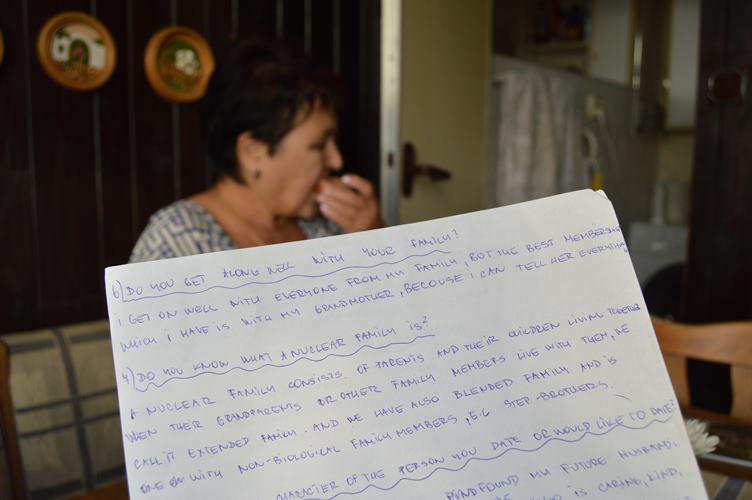 6) DO YOU GET ALONG WELL WITH YOUR FAMILY?
I GET ON WELL WITH EVERYONE FROM MY FAMILY, BUT THE BEST MEMBERSHIP
WHICH I HAVE IS WITH MY GRANDMOTHER, BECOUSE I CAN TELL HER EVERYTHING
4) DO YOU KNOW WHAT A NUCLEAR FAMILY IS?
A NUCLEAR FAMILY CONSISTS OF PARENTS AND THEIR CHILDREN LIVING TOGETHER
WEN THER GRANDPARENTS OR OTHER FAMILY MEMBERS LIVE WITH THEM, WE
CALL IT EXTENDED FAMILY. AND WE HAVE ALSO BLENDED FAMILY AND IS
ONE WITH NON-BIOLOGICAL FAMILY MEMBERS, E.G STEP-BROTHERS.
CHARACTER OF THE PERSON YOU DATE OR WOULD LIKE TO DATE?
FOUND MY FUTURE HUSBAND,
IS CARING, KIND,